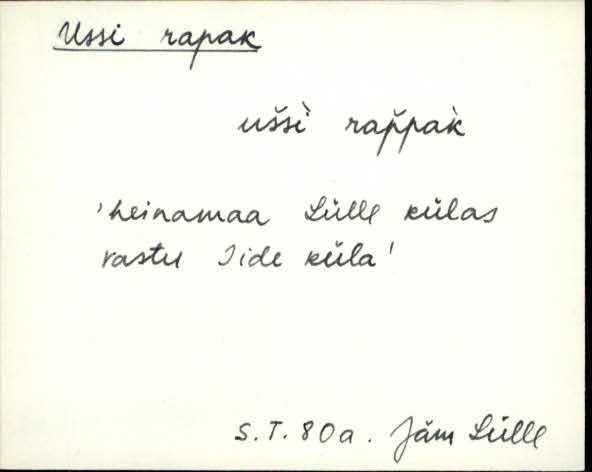 Ussi rapak
ušsì rap̌pak̀
'heinamaa Lülle külas
vastu Iide küla'
S.T. 80a. Jäm Lülle